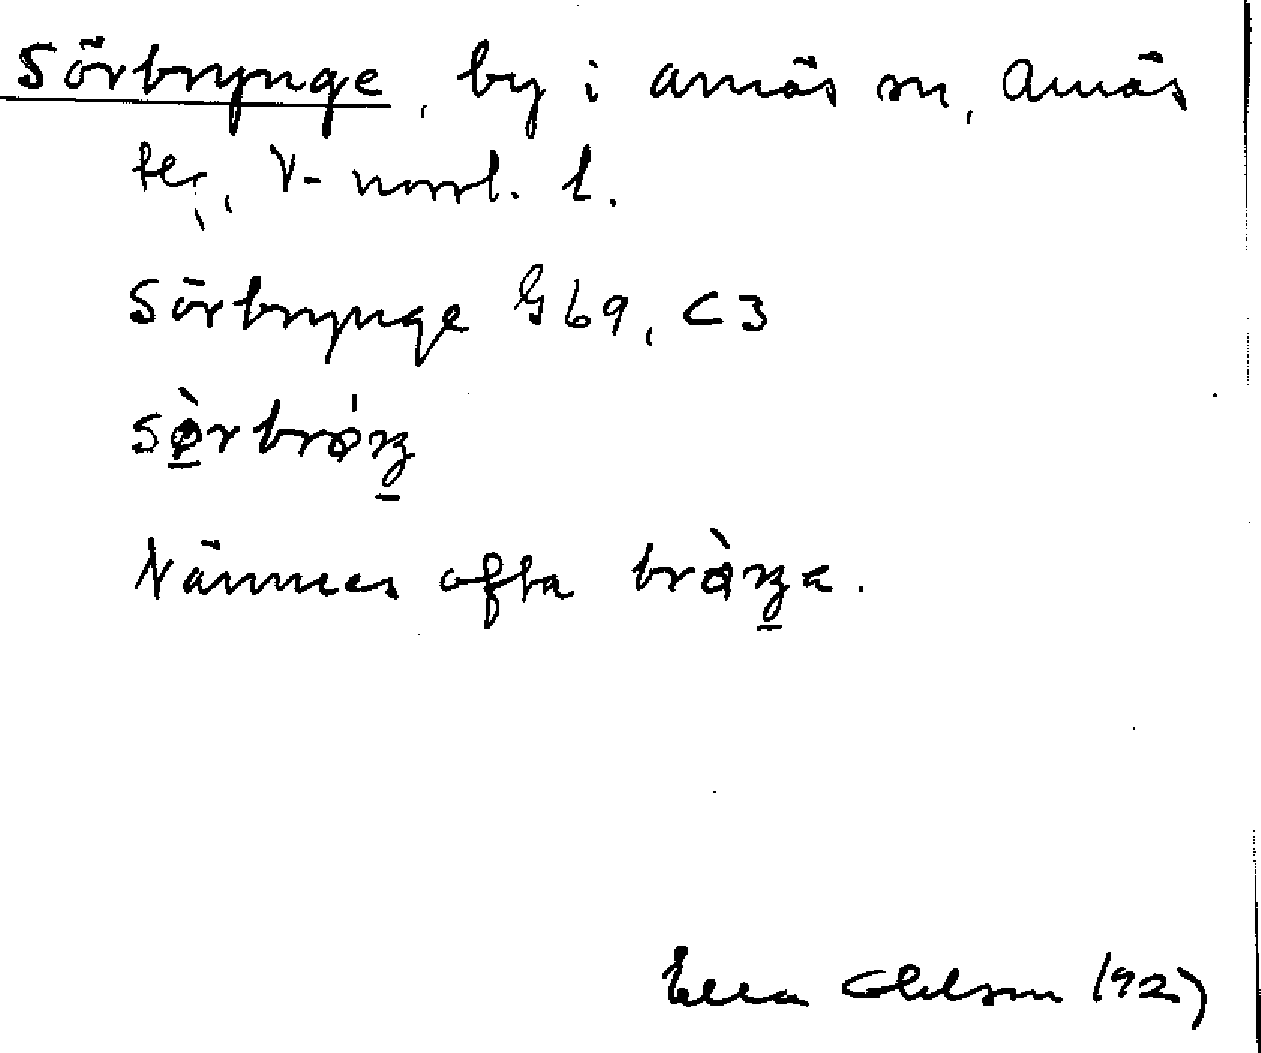 Sörbrynge, by i Arnäs sn, Arnäs
tg, V-norrl. l.
Sörbrynge G69, C3
Nämnes ofta
Ella Ohlson 1927